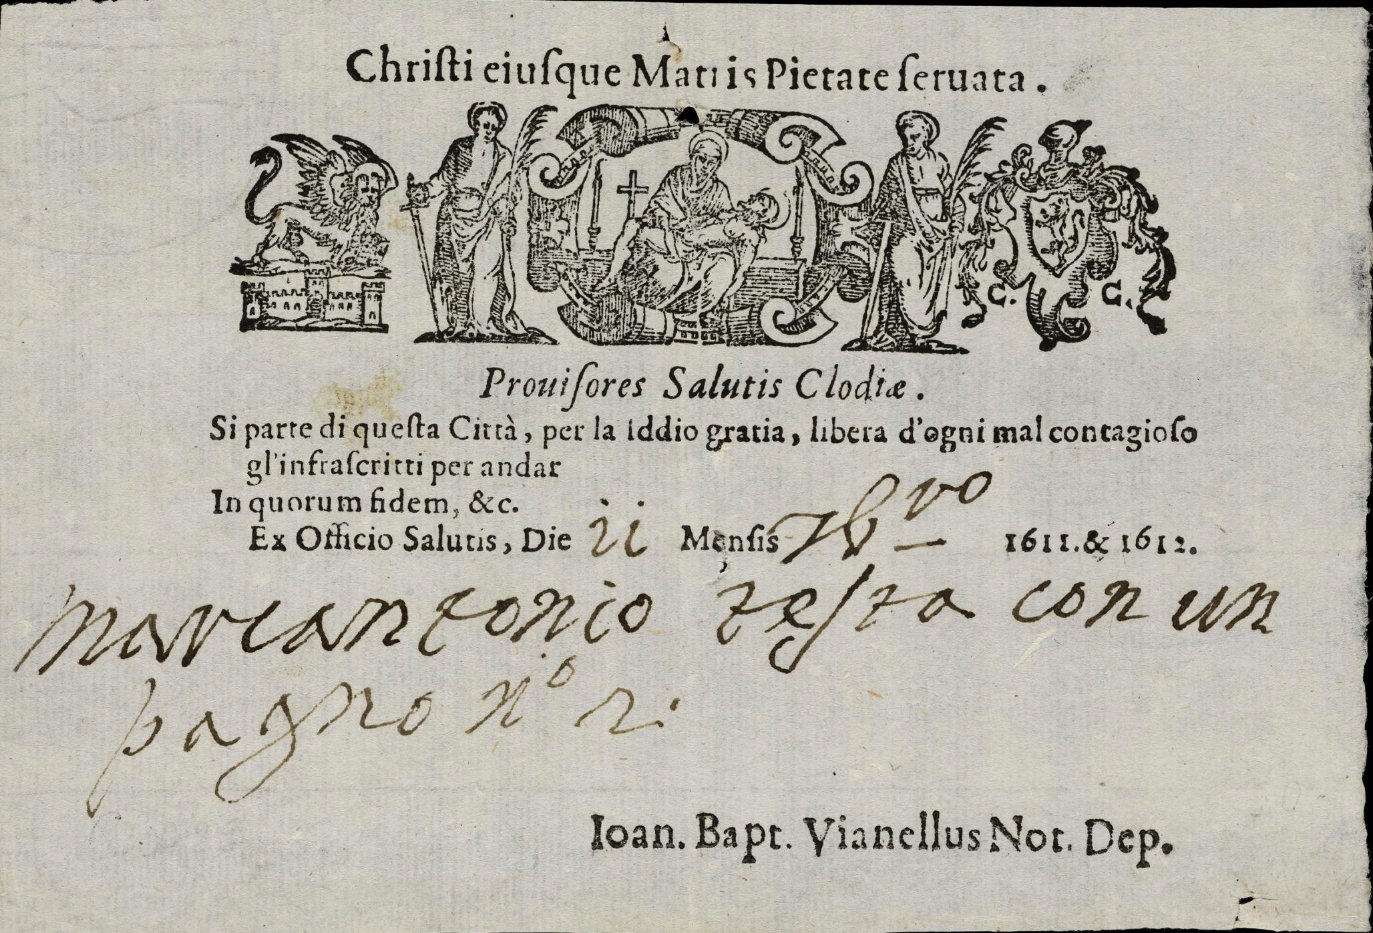 Chriſti eiuſque Matris Pietate ſeruata.
C. G.
Prouiſores Salutis Clodiæ.
Si parte di queſta Città, per la Iddio gratia, libera d'ogni mal contagioſo
gl'infraſcritti per andar
In quorum fidem, &c.
Ex Officio Salutis, Die ii Menſis 7b̄ro 1611. & 1612.
Marcantonio teſta con un
pagno nº 2.
Ioan. Bapt. Vianellus Not. Dep.